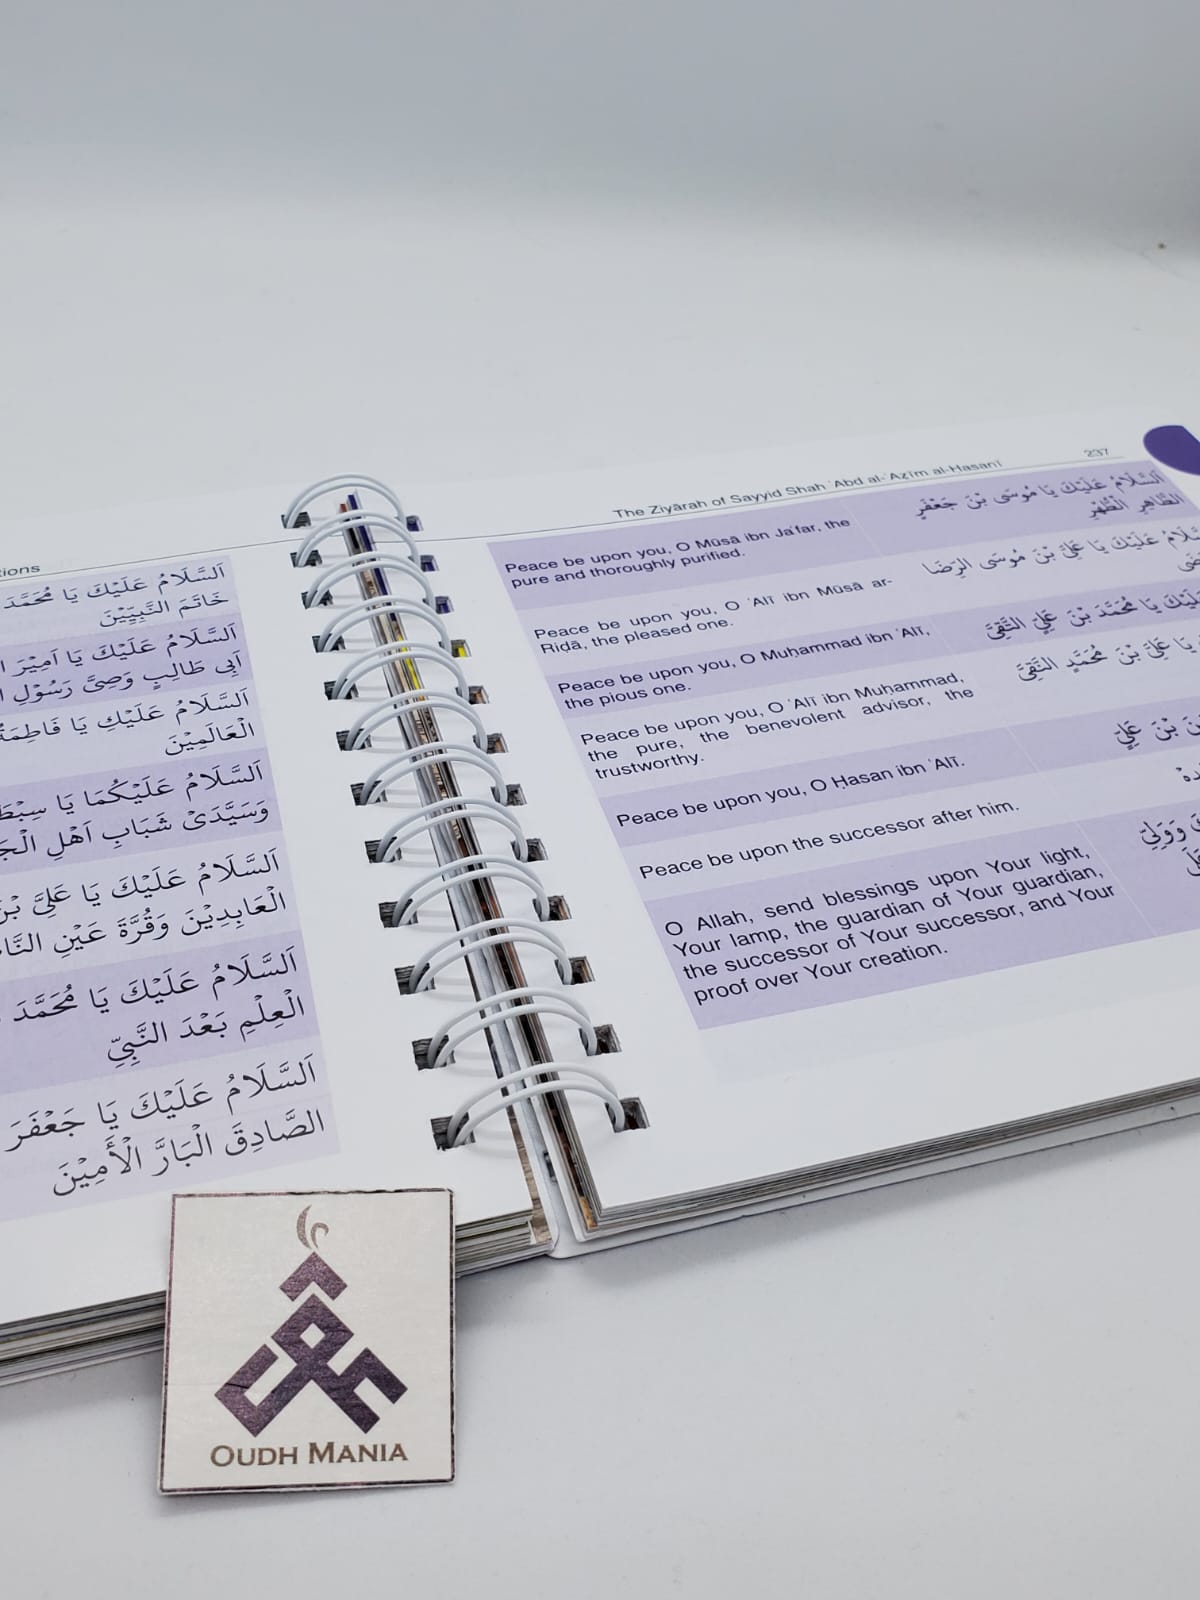 tions
اَلسَّلَامُ عَلَيْكَ يَا مُحَمَّدَ
خَاتَمَ النَّبِيِّيْنَ
اَلسَّلَامُ عَلَيْكَ يَا اَمِيْرَ
اَبِى طَالِبٍ وَصِىَّ رَسُوْلِ
اَلسَّلَامُ عَلَيْكِ يَا فَاطِمَةُ
الْعَالَمِيْنَ
اَلسَّلَامُ عَلَيْكُمَا يَا سِبْطَ
وَسَيَّدَىْ شَبَابِ اَهْلِ
اَلسَّلَامُ عَلَيْكَ يَا عَلِىَّ بْنَ
الْعَابِدِيْنَ وَقُرَّةَ عَيْنِ
اَلسَّلَامُ عَلَيْكَ يَا مُحَمَّدَ
الْعِلْمِ بَعْدَ النَّبِيِّ
اَلسَّلَامُ عَلَيْكَ يَا جَعْفَرَ
الصَّادِقَ الْبَارَّ الْأَمِيْنَ
The Ziyārah of Sayyid Shah ʿAbd al-ʿAẓīm al-Hasanī 237
Peace be upon you, O Mūsā ibn Jaʿfar, the
pure and thoroughly purified.
اَلسَّلَامُ عَلَيْكَ يَا مُوسَى بْنَ جَعْفَرٍ
الطَّاهِرِ الطُّهْرِ
Peace be upon you, O ʿAlī ibn Mūsā ar-
Riḍā, the pleased one.
عَلَيْكَ يَا عَلِىَّ بْنَ مُوسَى الرِّضَا
Peace be upon you, O Muḥammad ibn ʿAlī,
the pious one.
يَا مُحَمَّدَ بْنَ عَلِىٍّ التَّقِىَّ
Peace be upon you, O ʿAlī ibn Muḥammad,
the pure, the benevolent advisor, the
trustworthy.
يَا عَلِىَّ بْنَ مُحَمَّدٍ النَّقِىَّ
Peace be upon you, O Ḥasan ibn ʿAlī.
بْنَ عَلِيٍّ
Peace be upon the successor after him.
O Allah, send blessings upon Your light,
Your lamp, the guardian of Your guardian,
the successor of Your successor, and Your
proof over Your creation.
وَوَلِيِّ
OUDH MANIA